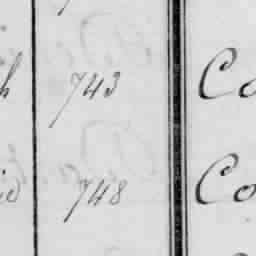 h 743 Co
id 748 Co